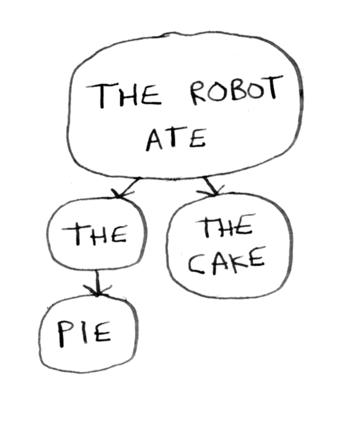 THE ROBOT
ATE
THE
THE
CAKE
PIE